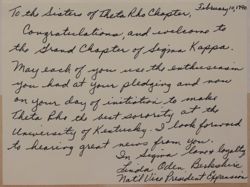 February 10, 1990
To the Sisters of Theta Rho Chapter,
Congratulations, and welcome to
the Grand Chapter of Sigma Kappa.
May each of you use the enthusiasm
you had at your pledging and now
on your day of initiation to make
Theta Rho the best sorority at the
University of Kentucky. I look forward
to hearing great news from you.
In Sigma love & loyalty
Linda Oden Berkshire
Nat'l Vice President Expansion